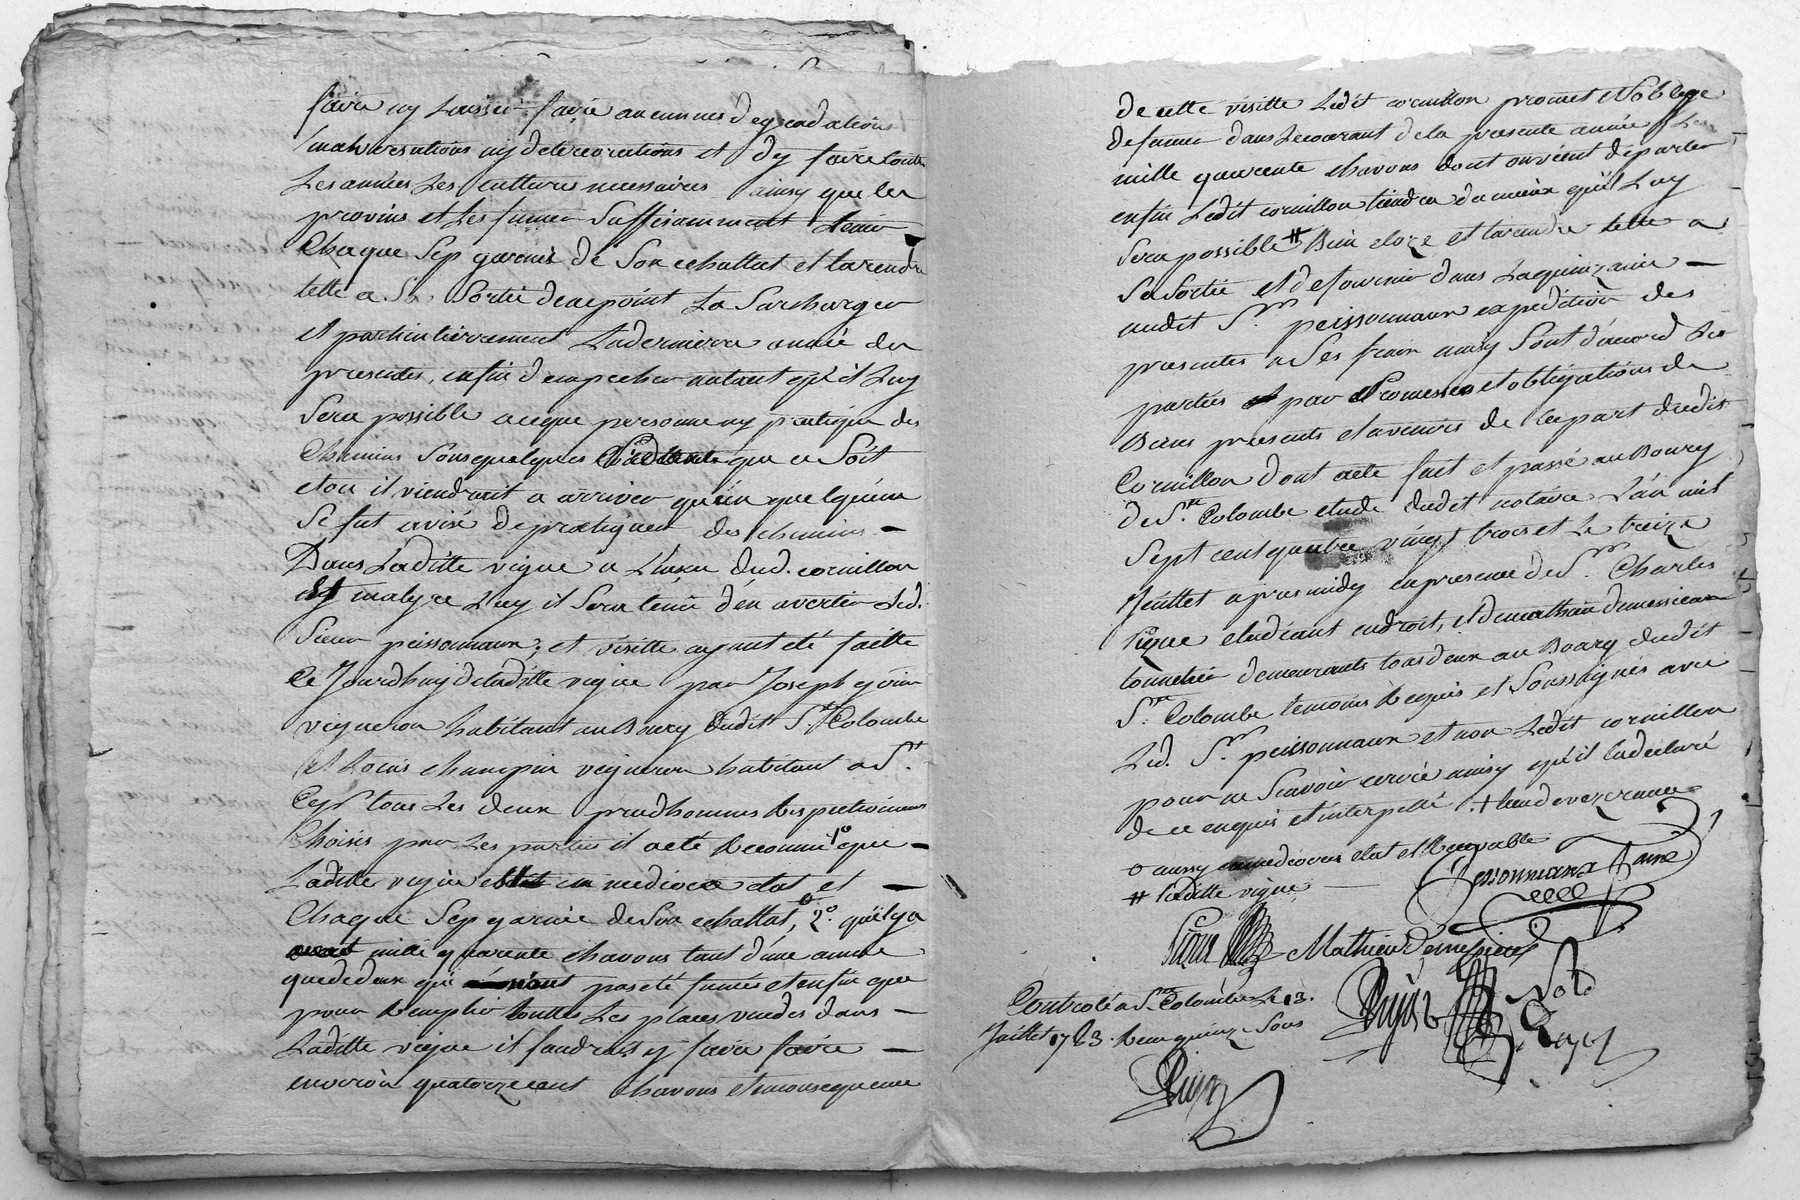 faire ny Laisser faire aucunnes degradations
malversations ny deteriorations et d'y faire toutte
Les années Les cultures necessaires ainsy que les
provins et Les fumer Suffisamment tenir
Chaque Sep garnis de Son echallat et la rendre
telle a Sa Sortie de ne point La Surcharger
et particulierrement La derniere année des
presentes, enfin d'empecher autant qu'il Luy
Sera possible a ceque personne ny pratique des
Chemins Sous quelques pretexte que ce Soit
et ou il viendrait a arriver qu'en quelqu'un
Se fut avisé de pratiquer des chemins —
Dans Laditte vigne a L'insu dud. cornillon
et malgre Luy il Sera tenu d'en avertir Led.
Sieur peissonnaux; et visitte ayant eté faitte
Ce Jourdhuy de laditte vigne par Joseph
vigneron habitant au Bourg dudit S.te Colombe
et Louis champin vigneron habitant a S.t
Cyr tous Les deux prudhommes Respectivement
Choisis par Les parties il a eté Reconnu 1° que —
Laditte vigne est en mediocre etat et —
Chaque Sep garnie de Son echallat, o 2°. qu'il y a
mille quarente chavons tant d'une année
que de deux qui n'ont pas eté fumés et enfin que
pour Remplir touttes Les places vuides dans —
Laditte vigne il faudrait y faire faire —
environ quatorze cent chavons et en consequence
de cette visitte Ledit cornillon promet et S'oblige
de fumer dans Le courant de la presente année Les
mille quarente chavons dont on vient de parler
enfin Ledit cornillon tiendra du mieux qu'il Luy
Sera possible # Bien cloze et la rendre telle a
Sa Sortie et de fournir dans La quinzaine —
audit S.r peissonnaux expedition des
presentes a Ses frais ainsy Sont d'accord Les
parties par Promesses et obligations de
Biens presents et avenirs de la part dudit
Cornillon dont acte fait et passé au Bourg
de S.te Colombe etude dudit notaire L'an mil
Sept cent quatre vingt trois et Le treize
Jeuillet apres midy en presence de S.r Charles
etudiant en droit, et de mathieu demessieux
tonnelier demeurants tous deux au Bourg dudit
S.te Colombe temoins Requis et Soussignés avec
Led. S.r peissonnaux et non Ledit cornillon
pour ne Scavoir ecrire ainsy qu'il l'a declaré
de ce enquis et interpellé. +
o aussy en mediocre etat et Recevable
# Laditte vigne —
Peissonnaux
Mathieu Demessieux
Controlé a S.te Colombe Le 13.
Juillet 1783. Reçu quinze Sous